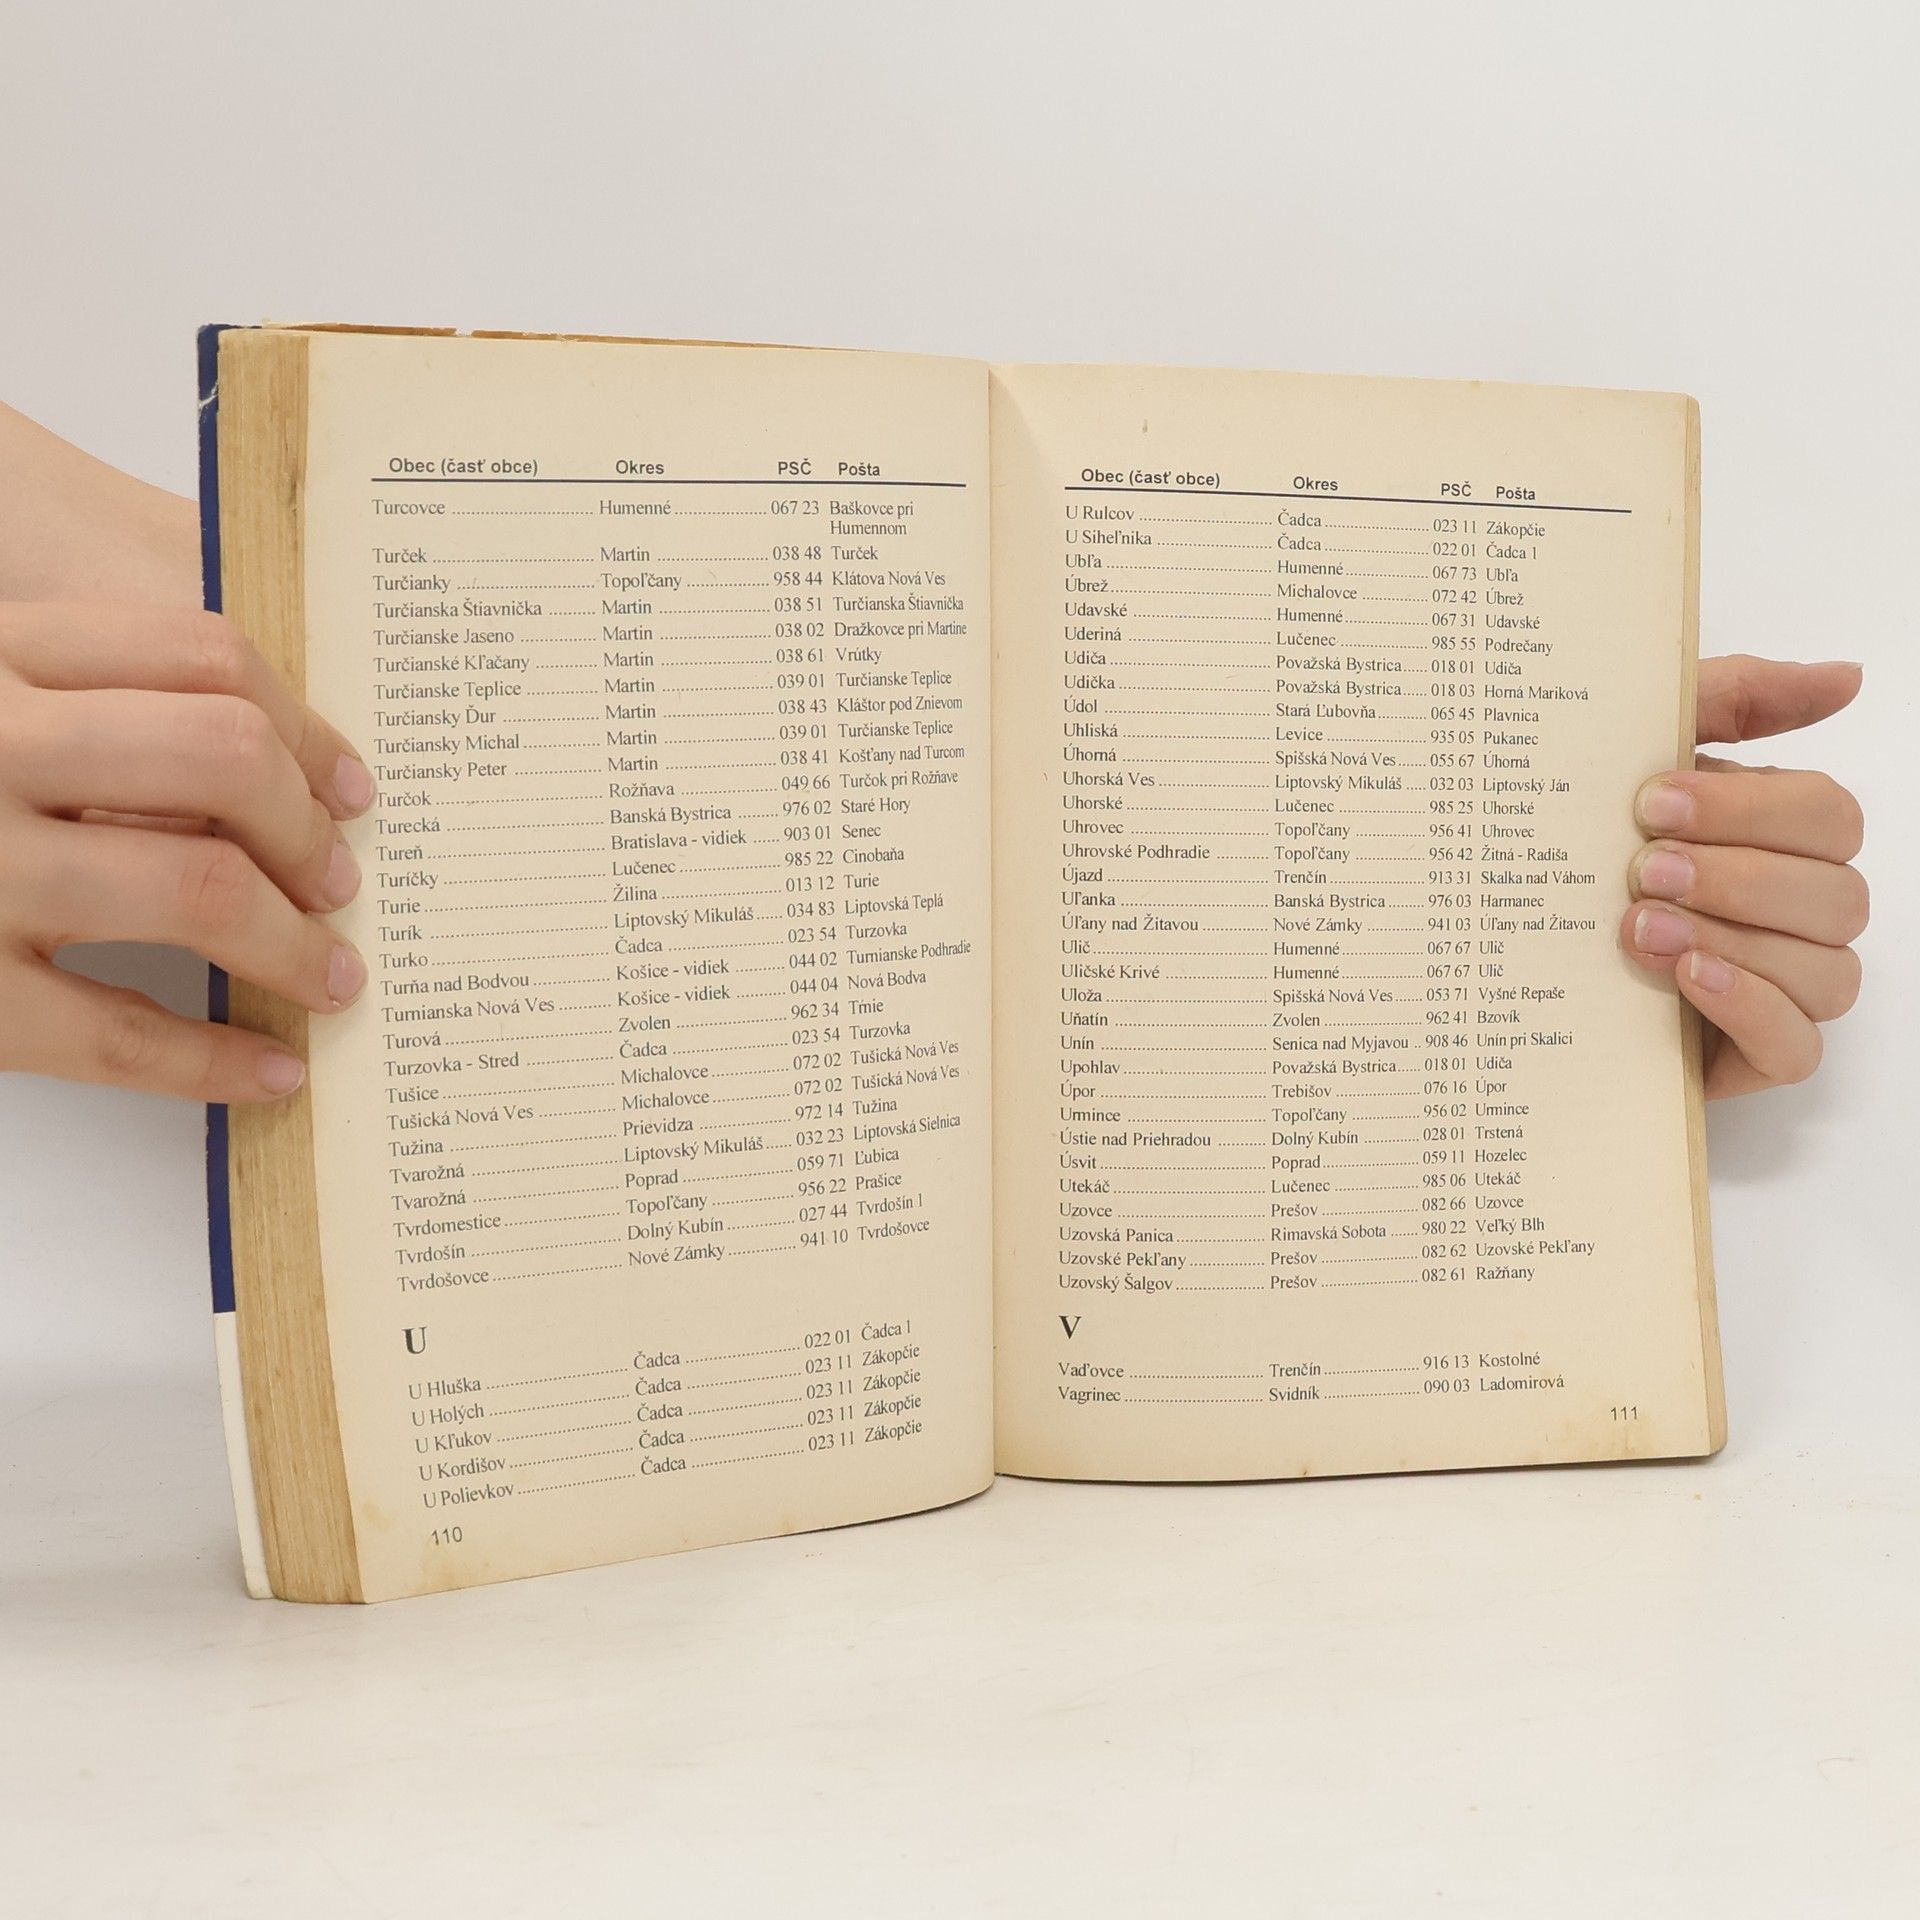 Obec (časť obce) Okres PSČ Pošta
Turcovce ........ Humenné ........ 067 23 Baškovce pri
Humennom
Turček ........ Martin ........ 038 48 Turček
Turčianky ........ Topoľčany ........ 958 44 Klátova Nová Ves
Turčianska Štiavnička ........ Martin ........ 038 51 Turčianska Štiavnička
Turčianske Jaseno ........ Martin ........ 038 02 Dražkovce pri Martine
Turčianské Kľačany ........ Martin ........ 038 61 Vrútky
Turčianske Teplice ........ Martin ........ 039 01 Turčianske Teplice
Turčiansky Ďur ........ Martin ........ 038 43 Kláštor pod Znievom
Turčiansky Michal ........ Martin ........ 039 01 Turčianske Teplice
Turčiansky Peter ........ Martin ........ 038 41 Košťany nad Turcom
Turčok ........ Rožňava ........ 049 66 Turčok pri Rožňave
Turecká ........ Banská Bystrica ........ 976 02 Staré Hory
Tureň ........ Bratislava - vidiek ...... 903 01 Senec
Turíčky ........ Lučenec ........ 985 22 Cinobaňa
Turie ........ Žilina ........ 013 12 Turie
Turík ........ Liptovský Mikuláš ...... 034 83 Liptovská Teplá
Turko ........ Čadca ........ 023 54 Turzovka
Turňa nad Bodvou ........ Košice - vidiek ........ 044 02 Turnianske Podhradie
Turnianska Nová Ves ........ Košice - vidiek ........ 044 04 Nová Bodva
Turová ........ Zvolen ........ 962 34 Tŕnie
Turzovka - Stred ........ Čadca ........ 023 54 Turzovka
Tušice ........ Michalovce ........ 072 02 Tušická Nová Ves
Tušická Nová Ves ........ Michalovce ........ 072 02 Tušická Nová Ves
Tužina ........ Prievidza ........ 972 14 Tužina
Tvarožná ........ Liptovský Mikuláš ...... 032 23 Liptovská Sielnica
Tvarožná ........ Poprad ........ 059 71 Ľubica
Tvrdomestice ........ Topoľčany ........ 956 22 Prašice
Tvrdošín ........ Dolný Kubín ........ 027 44 Tvrdošín 1
Tvrdošovce ........ Nové Zámky ........ 941 10 Tvrdošovce
U
U Hluška ........ Čadca ........ 022 01 Čadca 1
U Holých ........ Čadca ........ 023 11 Zákopčie
U Kľukov ........ Čadca ........ 023 11 Zákopčie
U Kordišov ........ Čadca ........ 023 11 Zákopčie
U Polievkov ........ Čadca ........ 023 11 Zákopčie
110
Obec (časť obce) Okres PSČ Pošta
U Rulcov ........ Čadca ........ 023 11 Zákopčie
U Siheľnika ........ Čadca ........ 022 01 Čadca 1
Ubľa ........ Humenné ........ 067 73 Ubľa
Úbrež ........ Michalovce ........ 072 42 Úbrež
Udavské ........ Humenné ........ 067 31 Udavské
Uderiná ........ Lučenec ........ 985 55 Podrečany
Udiča ........ Považská Bystrica ...... 018 01 Udiča
Udička ........ Považská Bystrica ...... 018 03 Horná Mariková
Údol ........ Stará Ľubovňa ........ 065 45 Plavnica
Uhliská ........ Levice ........ 935 05 Pukanec
Úhorná ........ Spišská Nová Ves ...... 055 67 Úhorná
Uhorská Ves ........ Liptovský Mikuláš ..... 032 03 Liptovský Ján
Uhorské ........ Lučenec ........ 985 25 Uhorské
Uhrovec ........ Topoľčany ........ 956 41 Uhrovec
Uhrovské Podhradie ........ Topoľčany ........ 956 42 Žitná - Radiša
Újazd ........ Trenčín ........ 913 31 Skalka nad Váhom
Uľanka ........ Banská Bystrica ........ 976 03 Harmanec
Úľany nad Žitavou ........ Nové Zámky ........ 941 03 Úľany nad Žitavou
Ulič ........ Humenné ........ 067 67 Ulič
Uličské Krivé ........ Humenné ........ 067 67 Ulič
Uloža ........ Spišská Nová Ves ...... 053 71 Vyšné Repaše
Uňatín ........ Zvolen ........ 962 41 Bzovík
Unín ........ Senica nad Myjavou .. 908 46 Unín pri Skalici
Upohlav ........ Považská Bystrica ...... 018 01 Udiča
Úpor ........ Trebišov ........ 076 16 Úpor
Urmince ........ Topoľčany ........ 956 02 Urmince
Ústie nad Priehradou ........ Dolný Kubín ........ 028 01 Trstená
Úsvit ........ Poprad ........ 059 11 Hozelec
Utekáč ........ Lučenec ........ 985 06 Utekáč
Uzovce ........ Prešov ........ 082 66 Uzovce
Uzovská Panica ........ Rimavská Sobota ...... 980 22 Veľký Blh
Uzovské Pekľany ........ Prešov ........ 082 62 Uzovské Pekľany
Uzovský Šalgov ........ Prešov ........ 082 61 Ražňany
V
Vaďovce ........ Trenčín ........ 916 13 Kostolné
Vagrinec ........ Svidník ........ 090 03 Ladomirová
111